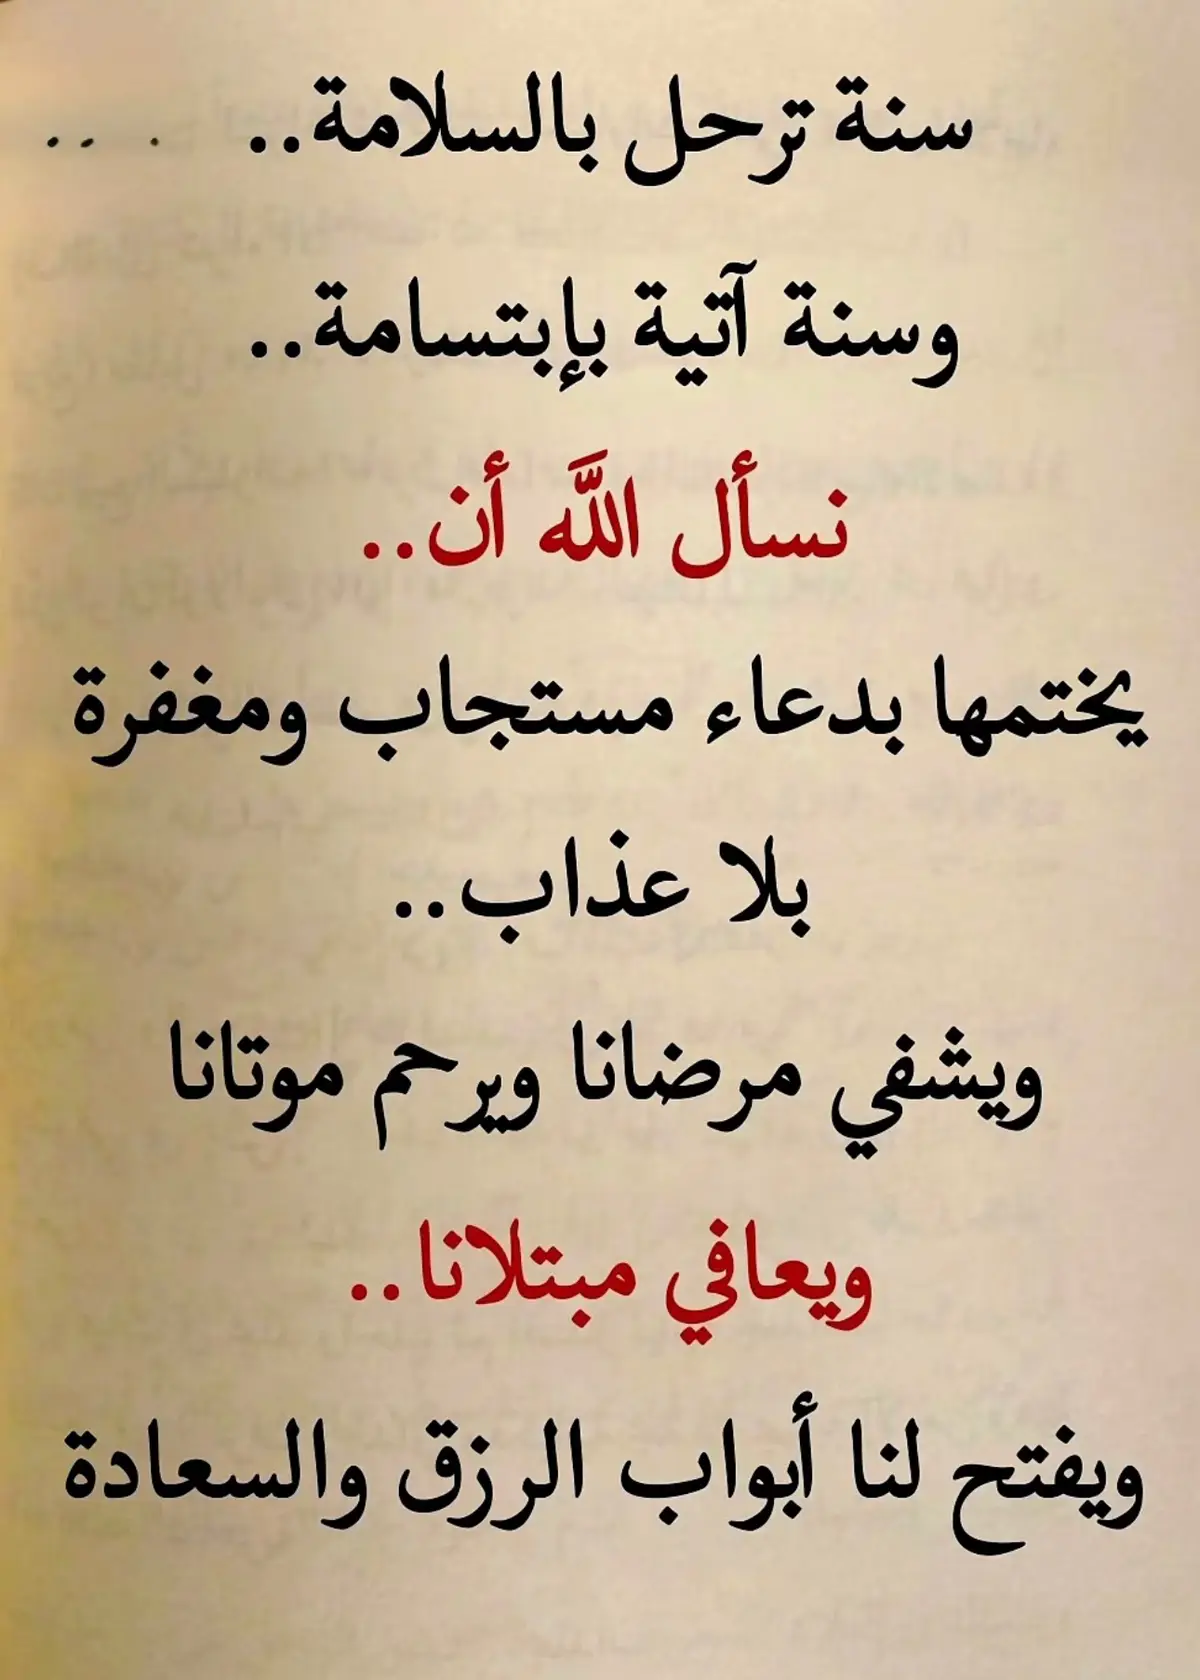 سنة ترحل بالسلامة..
وسنة آتية بإبتسامة..
نسأل اللَّه أن..
يختمها بدعاء مستجاب ومغفرة
بلا عذاب..
ويشفي مرضانا ويرحم موتانا
ويعافي مبتلانا..
ويفتح لنا أبواب الرزق والسعادة